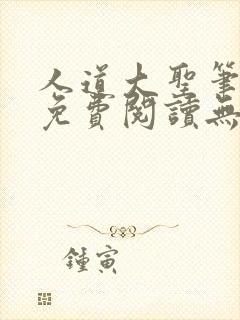 人道大聖筆
免費閱讀無
鍾寅